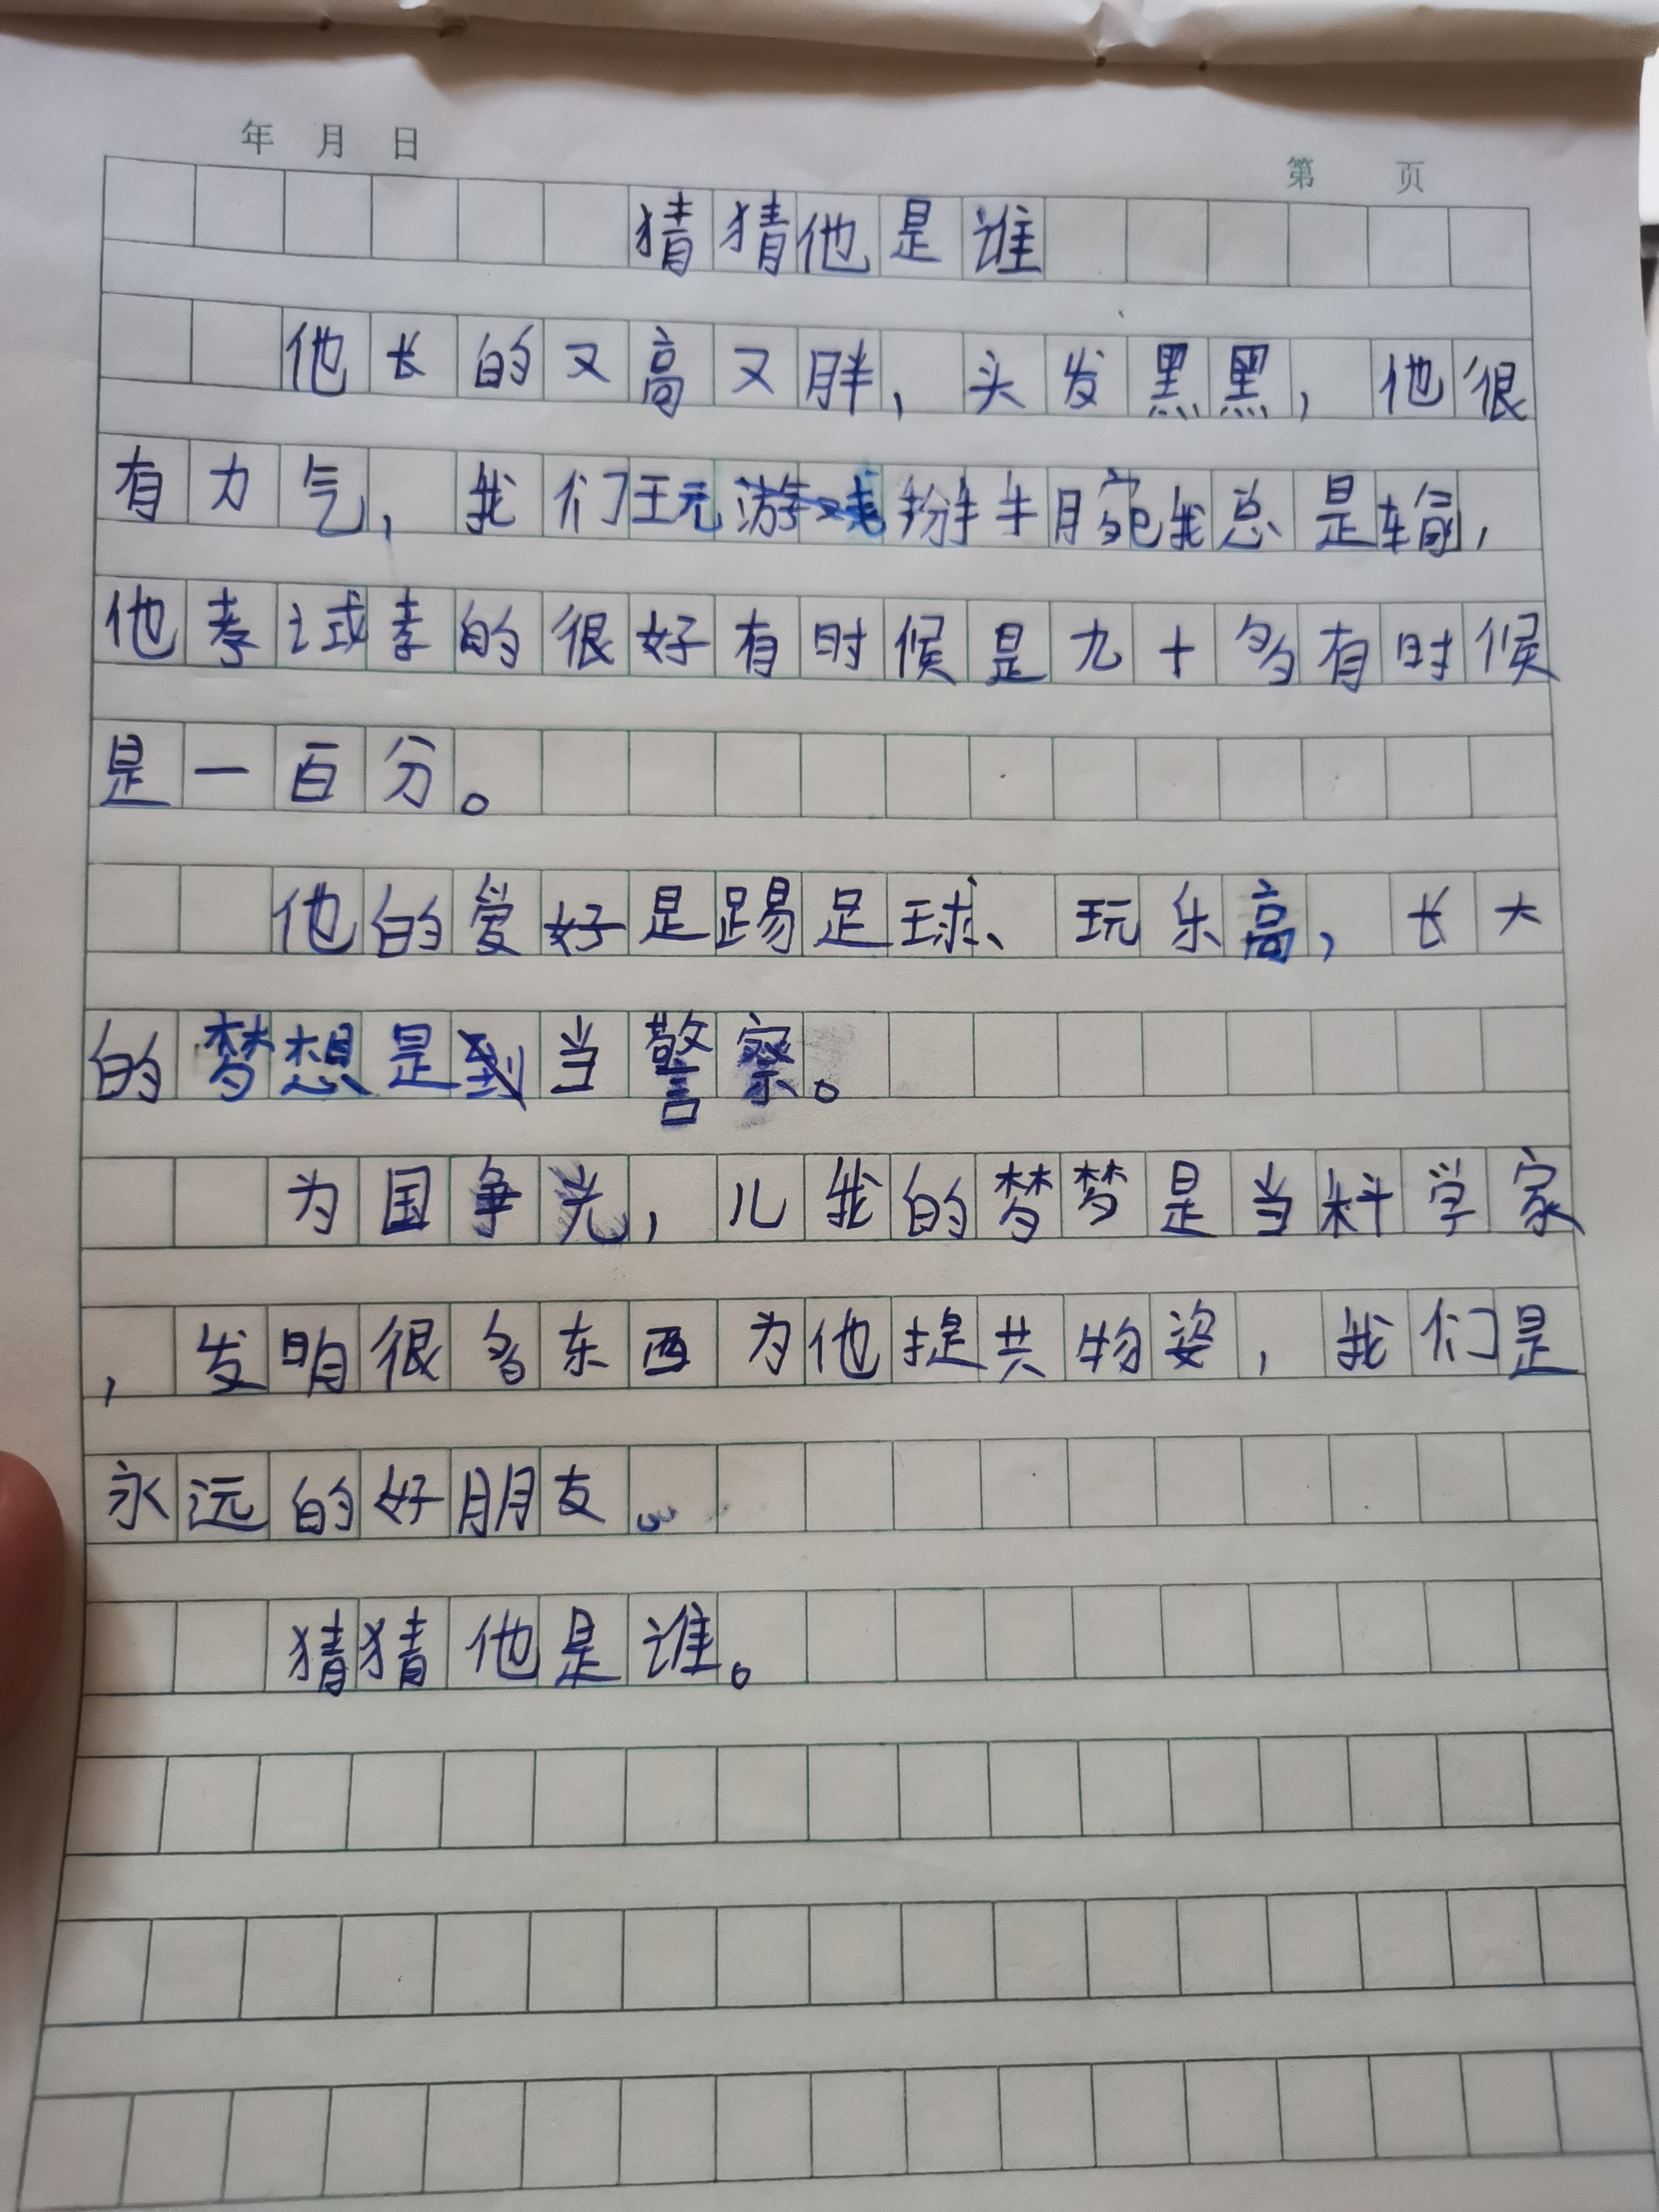 年 月 日
第 页
猜猜他是谁
他长的又高又胖,头发黑黑,他很
有力气,我们玩游戏掰手腕我总是输,
他考试考的很好有时候是九十多有时候
是一百分。
他的爱好是踢足球、玩乐高,长大
的梦想是当警察。
为国争光,儿我的梦梦是当科学家
,发明很多东西为他提共物姿,我们是
永远的好朋友。
猜猜他是谁。